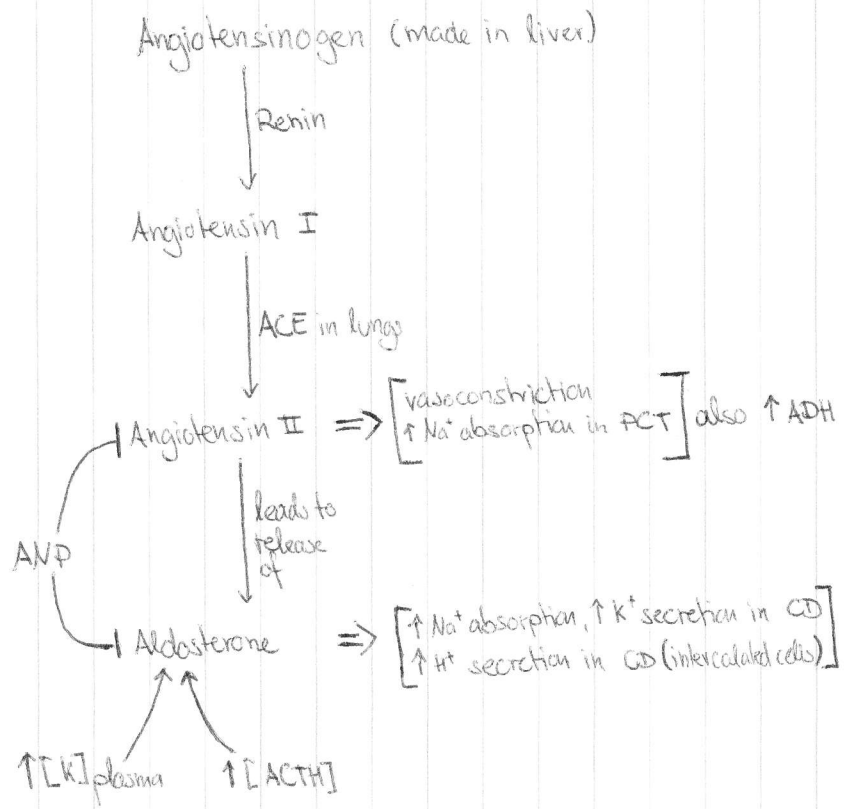 Angiotensinogen (made in liver)
Renin
Angiotensin I
ACE in lungs
Angiotensin II ⇒ [vasoconstriction
↑ Na⁺ absorption in PCT] also ↑ ADH
leads to
release
of
ANP
Aldosterone ⇒ [↑ Na⁺ absorption, ↑ K⁺ secretion in CD
↑ H⁺ secretion in CD (intercalated cells)]
↑[K] plasma ↑[ACTH]